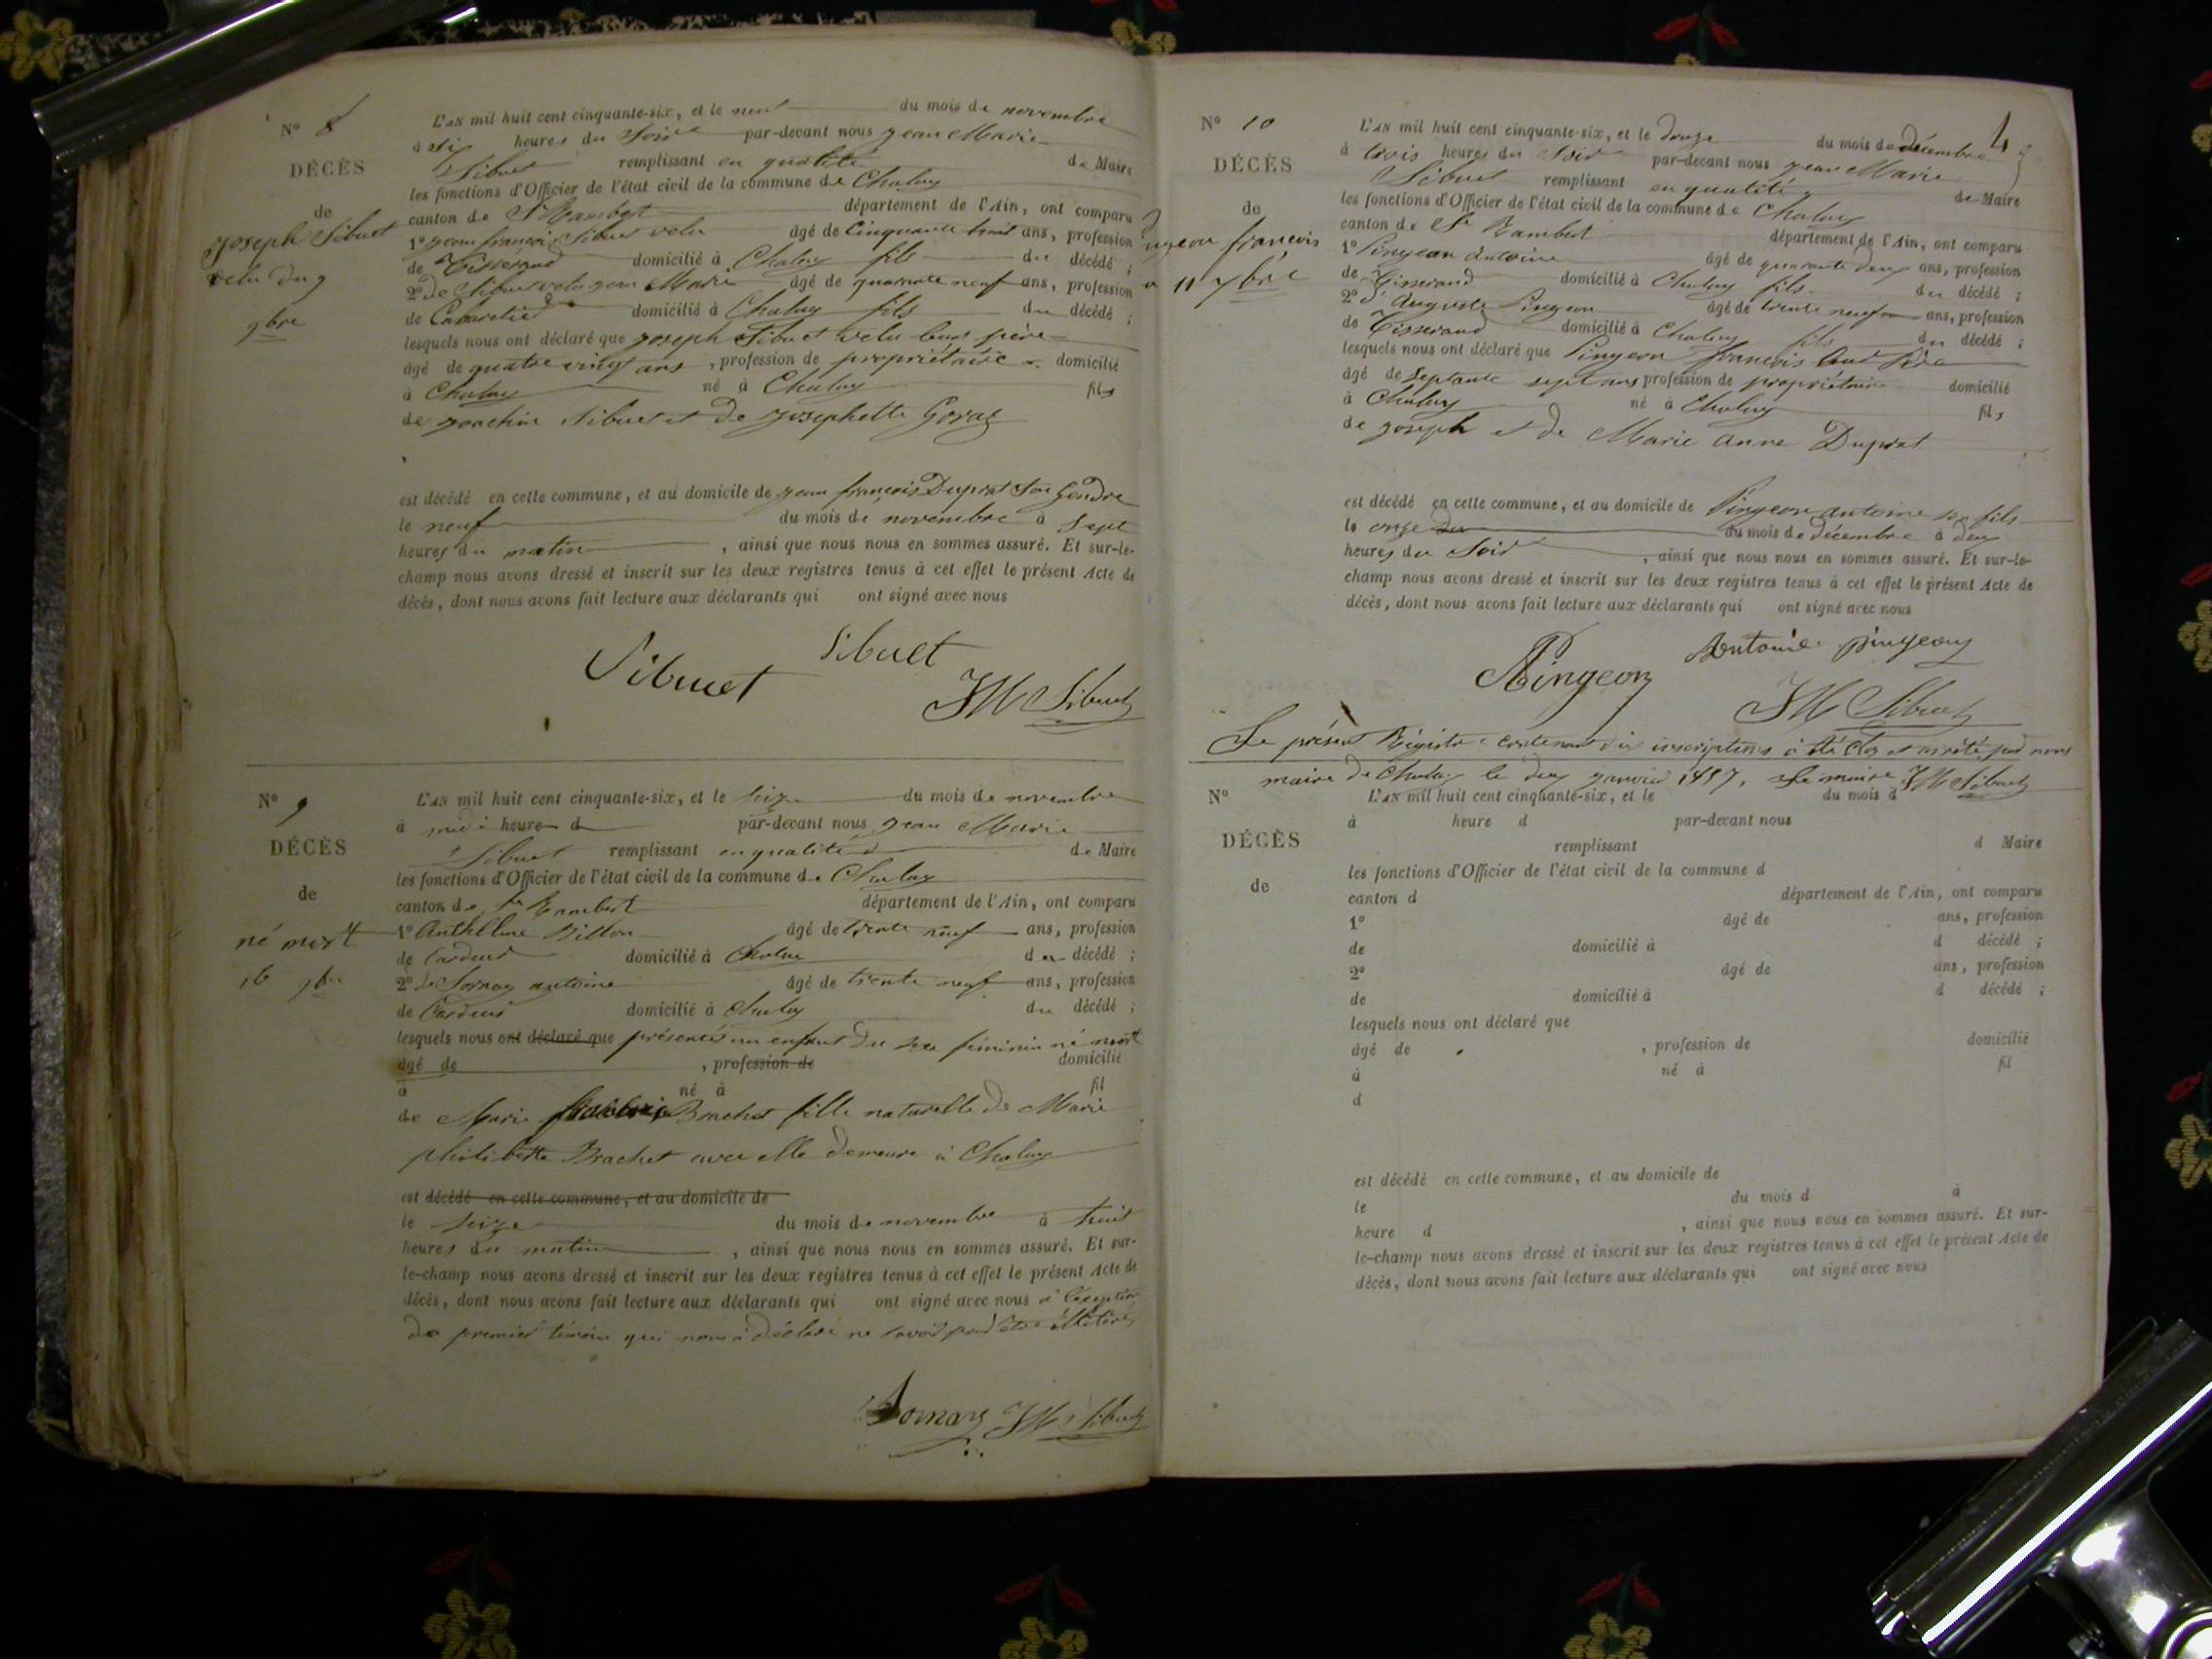 N° 8
DÉCÈS
de
Joseph Sibuet
velu du 9
9bre
L'AN mil huit cent cinquante-six, et le neuf du mois de novembre
à six heures du soir par-devant nous jean Marie
Sibuet remplissant en qualité de Maire
les fonctions d'Officier de l'état civil de la commune de Chaley
canton de St Rambert département de l'Ain, ont comparu
1° jean françois Sibuet velu âgé de Cinquante huit ans, profession
de Tisserand domicilié à Chaley fils du décédé ;
2° de Sibuet velu jean Marie âgé de quarante neuf ans, profession
de Cabaretier domicilié à Chaley fils du décédé ;
lesquels nous ont déclaré que joseph Sibuet velu leur père
âgé de quatre vingt ans , profession de propriétaire domicilié
à Chaley né à Chaley fils
de joachim Sibuet et de josephette
est décédé en cette commune, et au domicile de jean françois Duprat son Gendre
le neuf du mois de novembre à sept
heures du matin , ainsi que nous nous en sommes assuré. Et sur-le-
champ nous avons dressé et inscrit sur les deux registres tenus à cet effet le présent Acte de
décès, dont nous avons fait lecture aux déclarants qui ont signé avec nous
Sibuet Sibuet
JM Sibuet
N° 9
DÉCÈS
de
né mort
16 9bre
L'AN mil huit cent cinquante-six, et le seize du mois de novembre
à midi heure d par-devant nous jean Marie
Sibuet remplissant en qualité de Maire
les fonctions d'Officier de l'état civil de la commune de Chaley
canton de St Rambert département de l'Ain, ont comparu
1° Anthelme Billon âgé de trente neuf ans, profession
de Cardeur domicilié à Chaley du décédé ;
2° de Sornay antoine âgé de trente neuf ans, profession
de Cardeur domicilié à Chaley du décédé ;
lesquels nous ont déclaré que présentés un enfant du sexe féminin né mort
âgé de , profession de domicilié
à né à fil
de Marie Brachet fille naturelle de Marie
philiberte Brachet avec elle demeure à Chaley
est décédé en cette commune, et au domicile de
le seize du mois de novembre à huit
heures du matin , ainsi que nous nous en sommes assuré. Et sur-
le-champ nous avons dressé et inscrit sur les deux registres tenus à cet effet le présent Acte de
décès, dont nous avons fait lecture aux déclarants qui ont signé avec nous à l'exception
du premier témoin qui nous à déclaré ne savoir pour être illitéré
Sornay JM Sibuet
4
N° 10
DÉCÈS
de
ingeon françois
11 xbre
L'AN mil huit cent cinquante-six, et le douze du mois de décembre
à trois heures du soir par-devant nous jean Marie
Sibuet remplissant en qualité de Maire
les fonctions d'Officier de l'état civil de la commune de Chaley
canton de St Rambert département de l'Ain, ont comparu
1° Pingeon antoine âgé de quarante deux ans, profession
de Tisserand domicilié à Chaley fils du décédé ;
2° d' Auguste Pingeon âgé de trente neuf ans, profession
de Tisserand domicilié à Chaley fils du décédé ;
lesquels nous ont déclaré que Pingeon françois leur Père
âgé de septante sept ans profession de propriétaire domicilié
à Chaley né à Chaley fils
de joseph et de Marie anne Duprat
est décédé en cette commune, et au domicile de Pingeon antoine son fils
le onze du du mois de décembre à deux
heures du Soir , ainsi que nous nous en sommes assuré. Et sur-le-
champ nous avons dressé et inscrit sur les deux registres tenus à cet effet le présent Acte de
décès, dont nous avons fait lecture aux déclarants qui ont signé avec nous
Pingeon Antoine pingeon
JM Sibuet
Le présent Régistre contenant dix inscriptions à été clos et arrêté par nous
maire de Chaley le deux janvier 1857. Le maire JM Sibuet
N°
DÉCÈS
de
L'AN mil huit cent cinquante-six, et le du mois d
à heure d par-devant nous
remplissant d Maire
les fonctions d'Officier de l'état civil de la commune d
canton d département de l'Ain, ont comparu
1° âgé de ans, profession
de domicilié à d décédé ;
2° âgé de ans, profession
de domicilié à d décédé ;
lesquels nous ont déclaré que
âgé de , profession de domicilié
à né à fil
d
est décédé en cette commune, et au domicile de
le du mois d à
heure d , ainsi que nous nous en sommes assuré. Et sur-
le-champ nous avons dressé et inscrit sur les deux registres tenus à cet effet le présent Acte de
décès, dont nous avons fait lecture aux déclarants qui ont signé avec nous